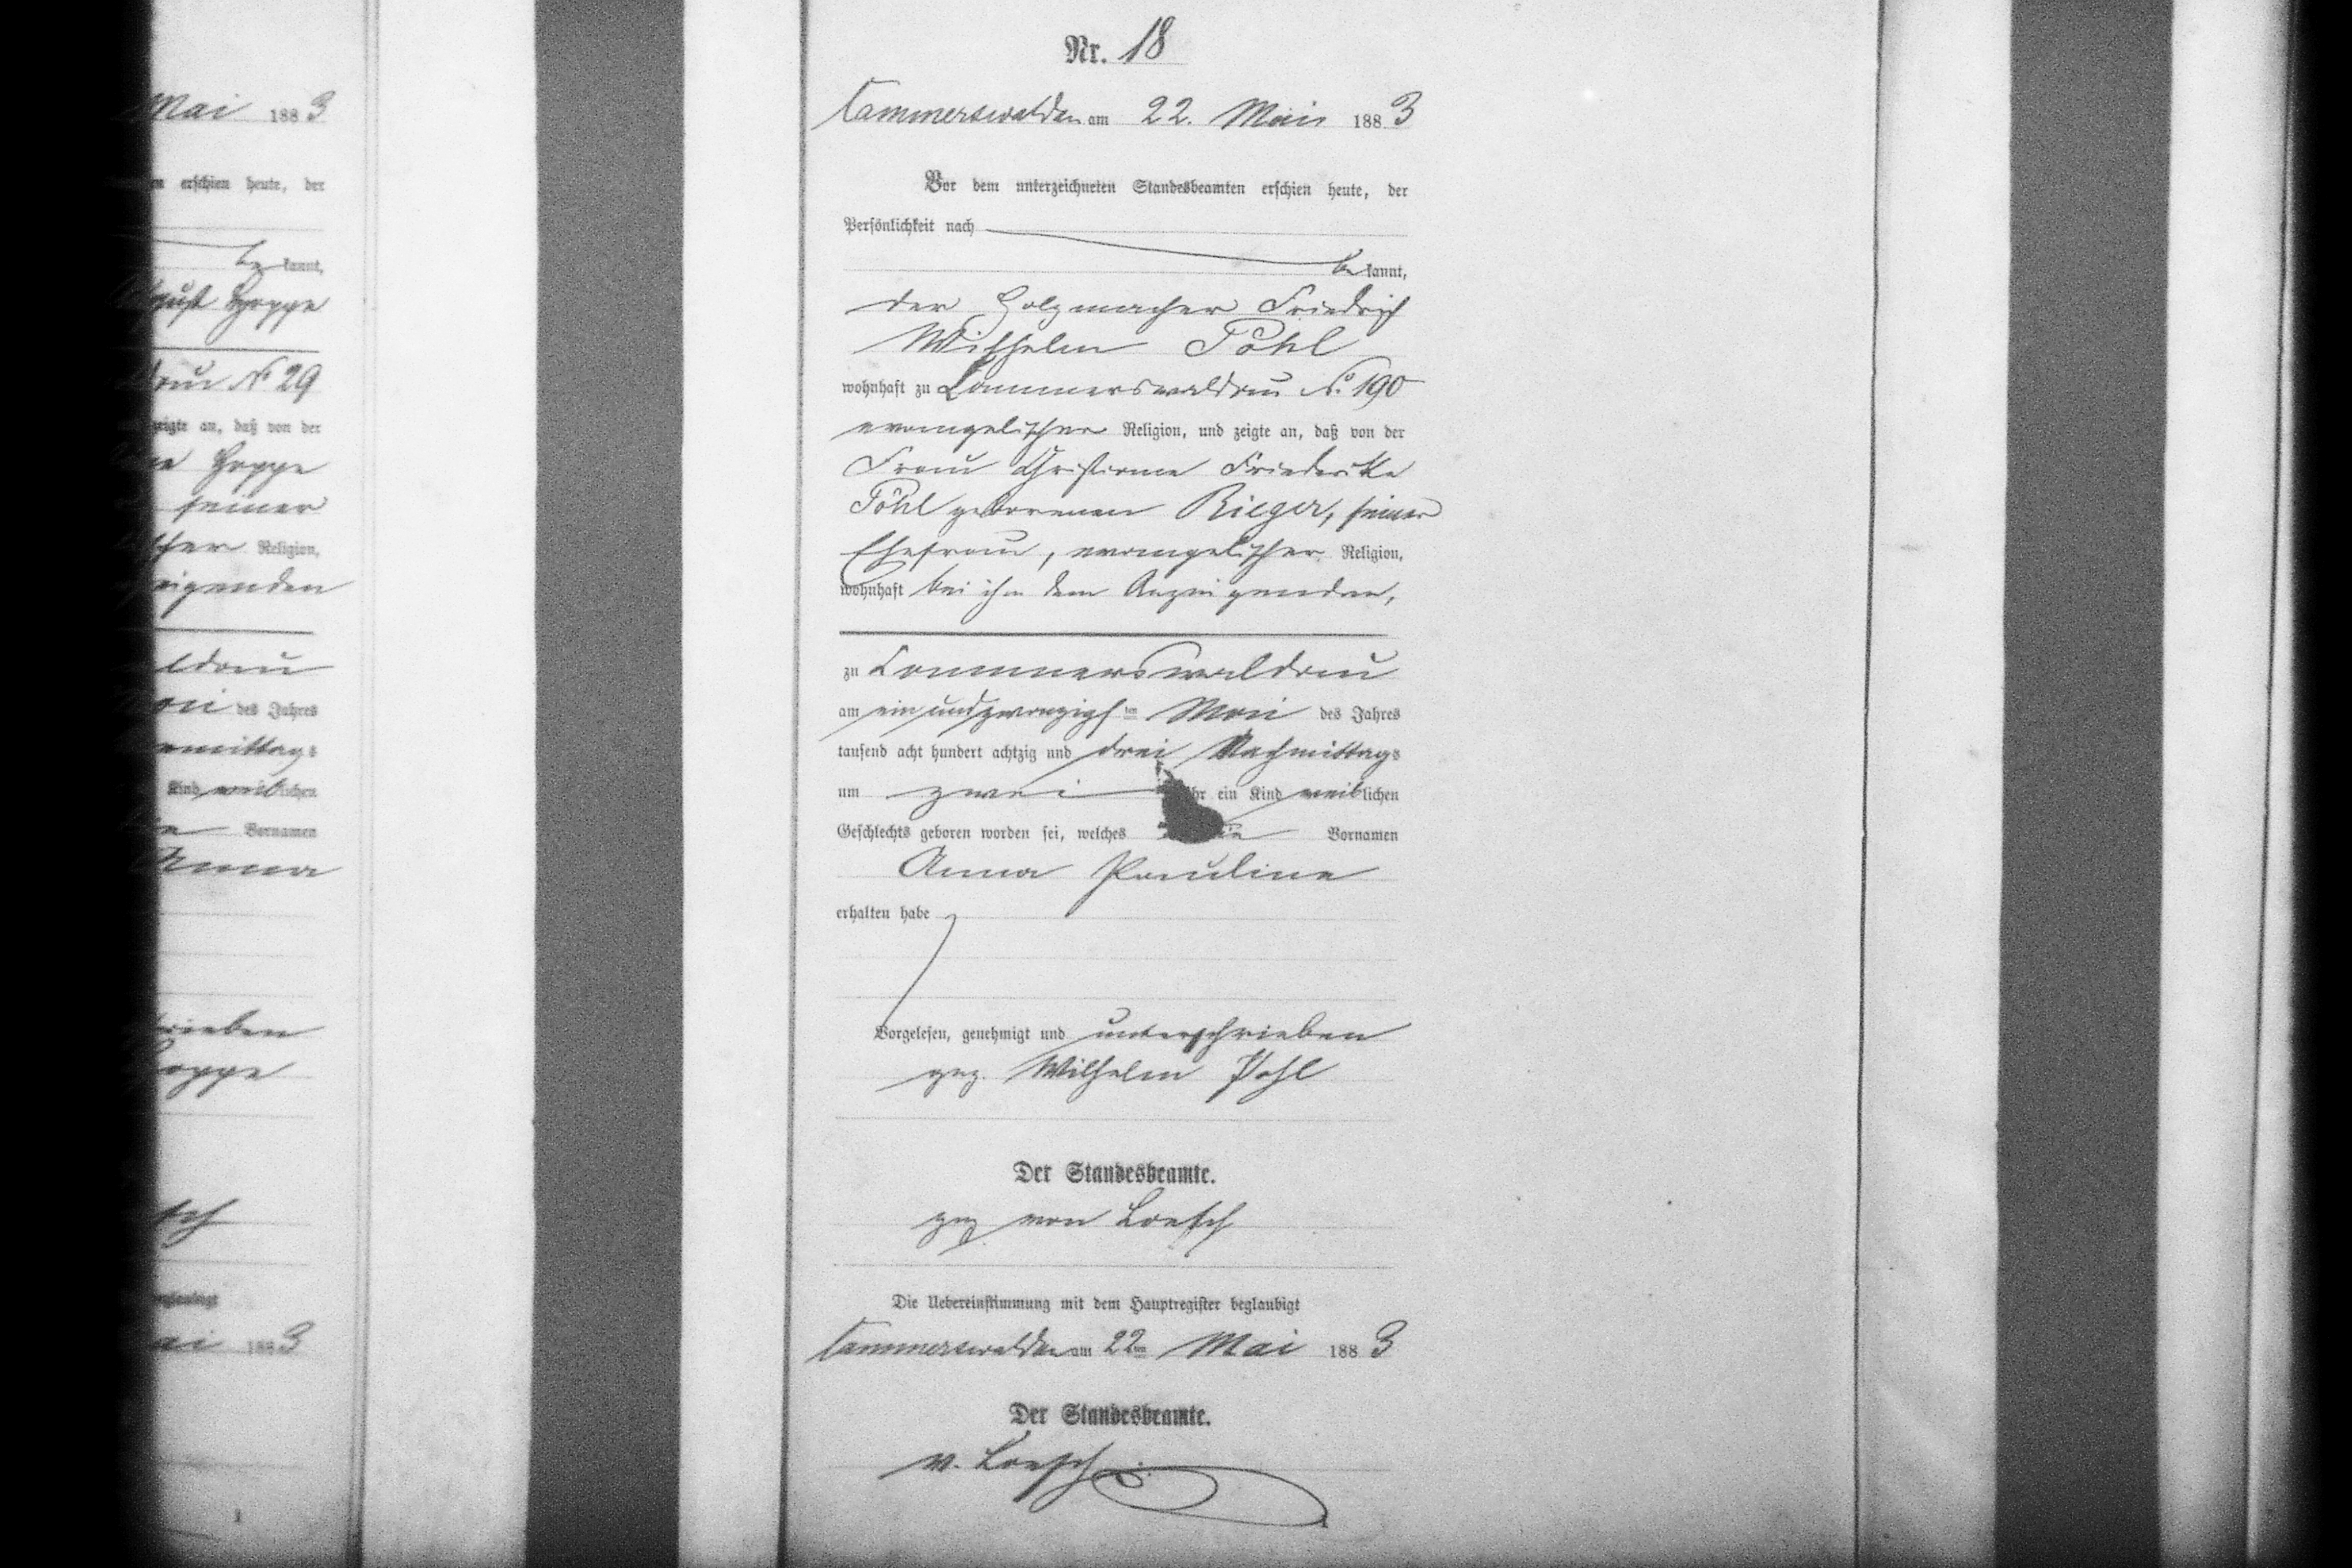 Mai 1883
erschien heute, der
be kannt,
Hoppe
No 29
zeigte an, daß von der
Hoppe
seiner
Religion,
des Jahres
Kind weiblichen
Vornamen
Anna
Nr. 18
am 22. Mai 1883
Vor dem unterzeichneten Standesbeamten erschien heute, der
Persönlichkeit nach
be kannt,
der Holzmacher Friedrich
Wilhelm Pohl
wohnhaft zu Lommerswaldau No. 190
evangelischer Religion, und zeigte an, daß von der
Frau Christiane Friederike
Pohl geborenen Rieger, seiner
Ehefrau, evangelischer Religion,
wohnhaft bei ihm dem Anzeigenden,
zu Lommerswaldau
am ein und zwanzigsten Mai des Jahres
tausend acht hundert achtzig und drei Nachmittags
um zwei Uhr ein Kind weiblichen
Geschlechts geboren worden sei, welches Vornamen
Anna Pauline
erhalten habe
Vorgelesen, genehmigt und unterschrieben
gez. Wilhelm Pohl
Der Standesbeamte.
gez von Loesch
Die Uebereinstimmung mit dem Hauptregister beglaubigt
am 22ten Mai 1883
Der Standesbeamte.
v. Loesch